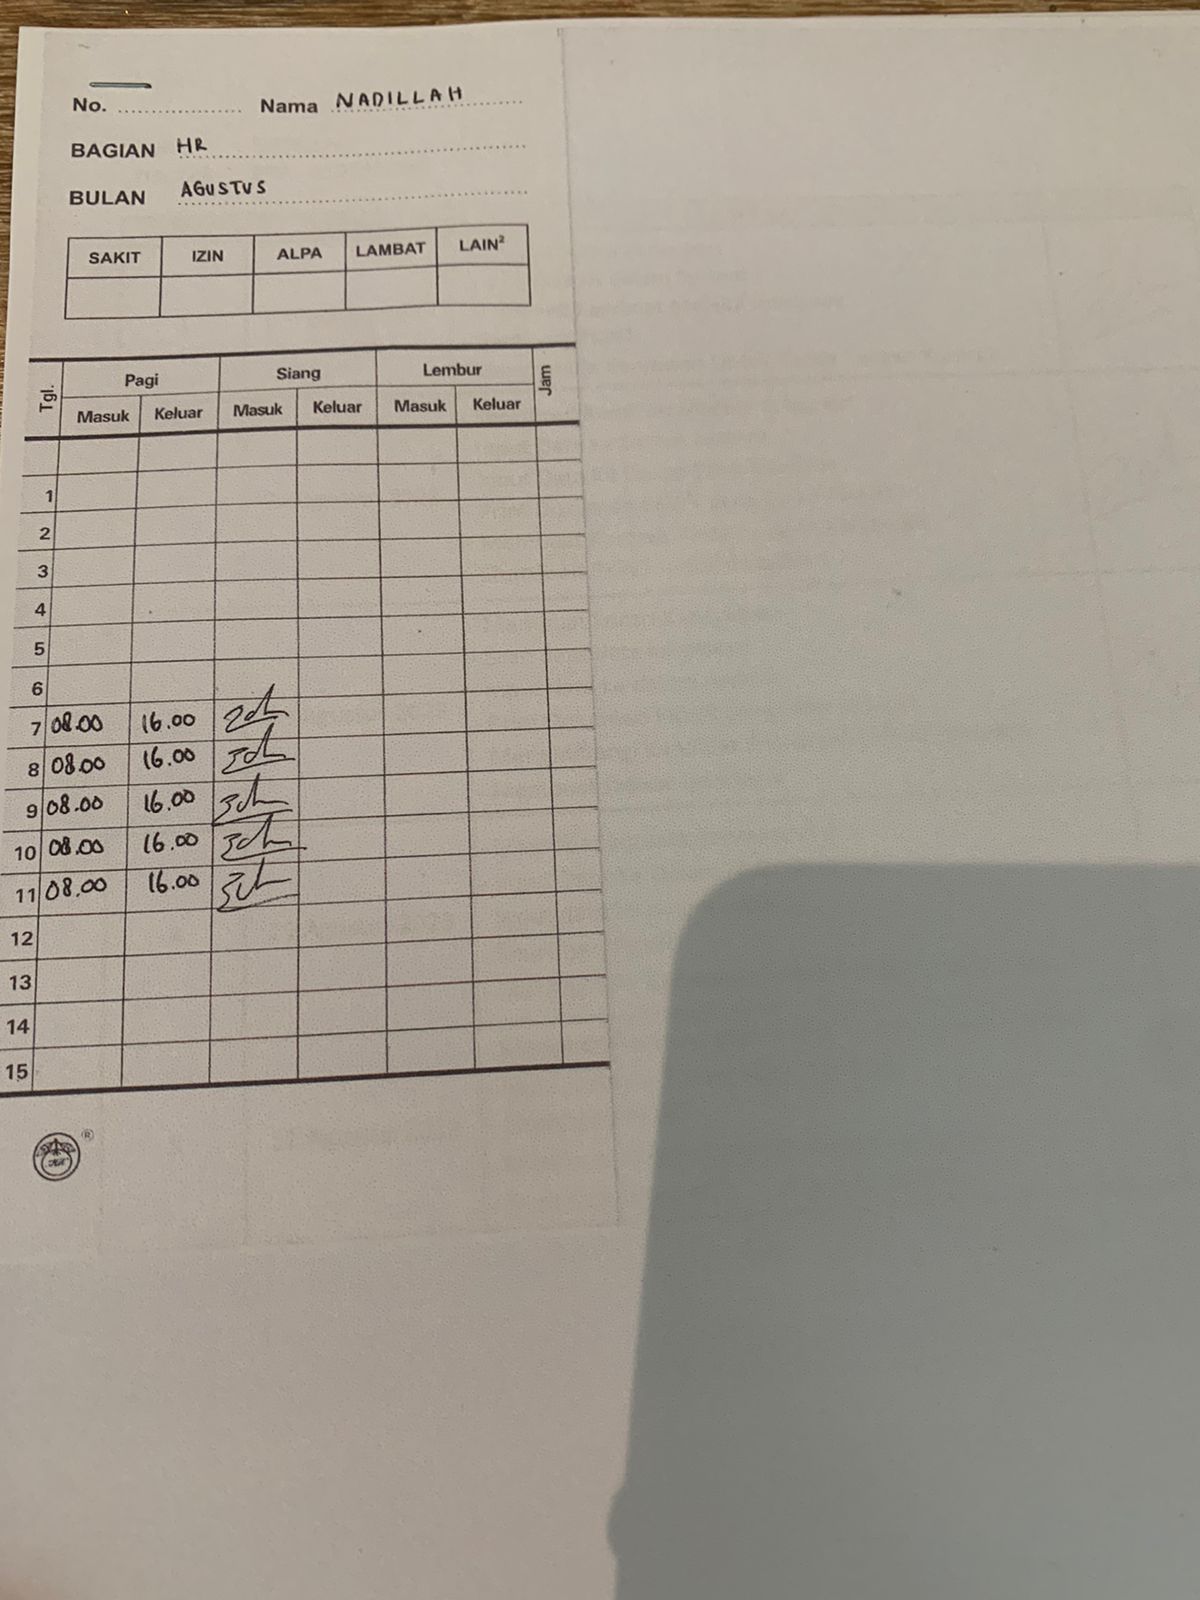 No. Nama NADILLAH
BAGIAN HR
BULAN AGUSTUS
SAKIT IZIN ALPA LAMBAT LAIN²
Tgl. Pagi Siang Lembur Jam
Masuk Keluar Masuk Keluar Masuk Keluar
1
2
3
4
5
6
7 08.00 16.00
8 08.00 16.00
9 08.00 16.00
10 08.00 16.00
11 08.00 16.00
12
13
14
15
®